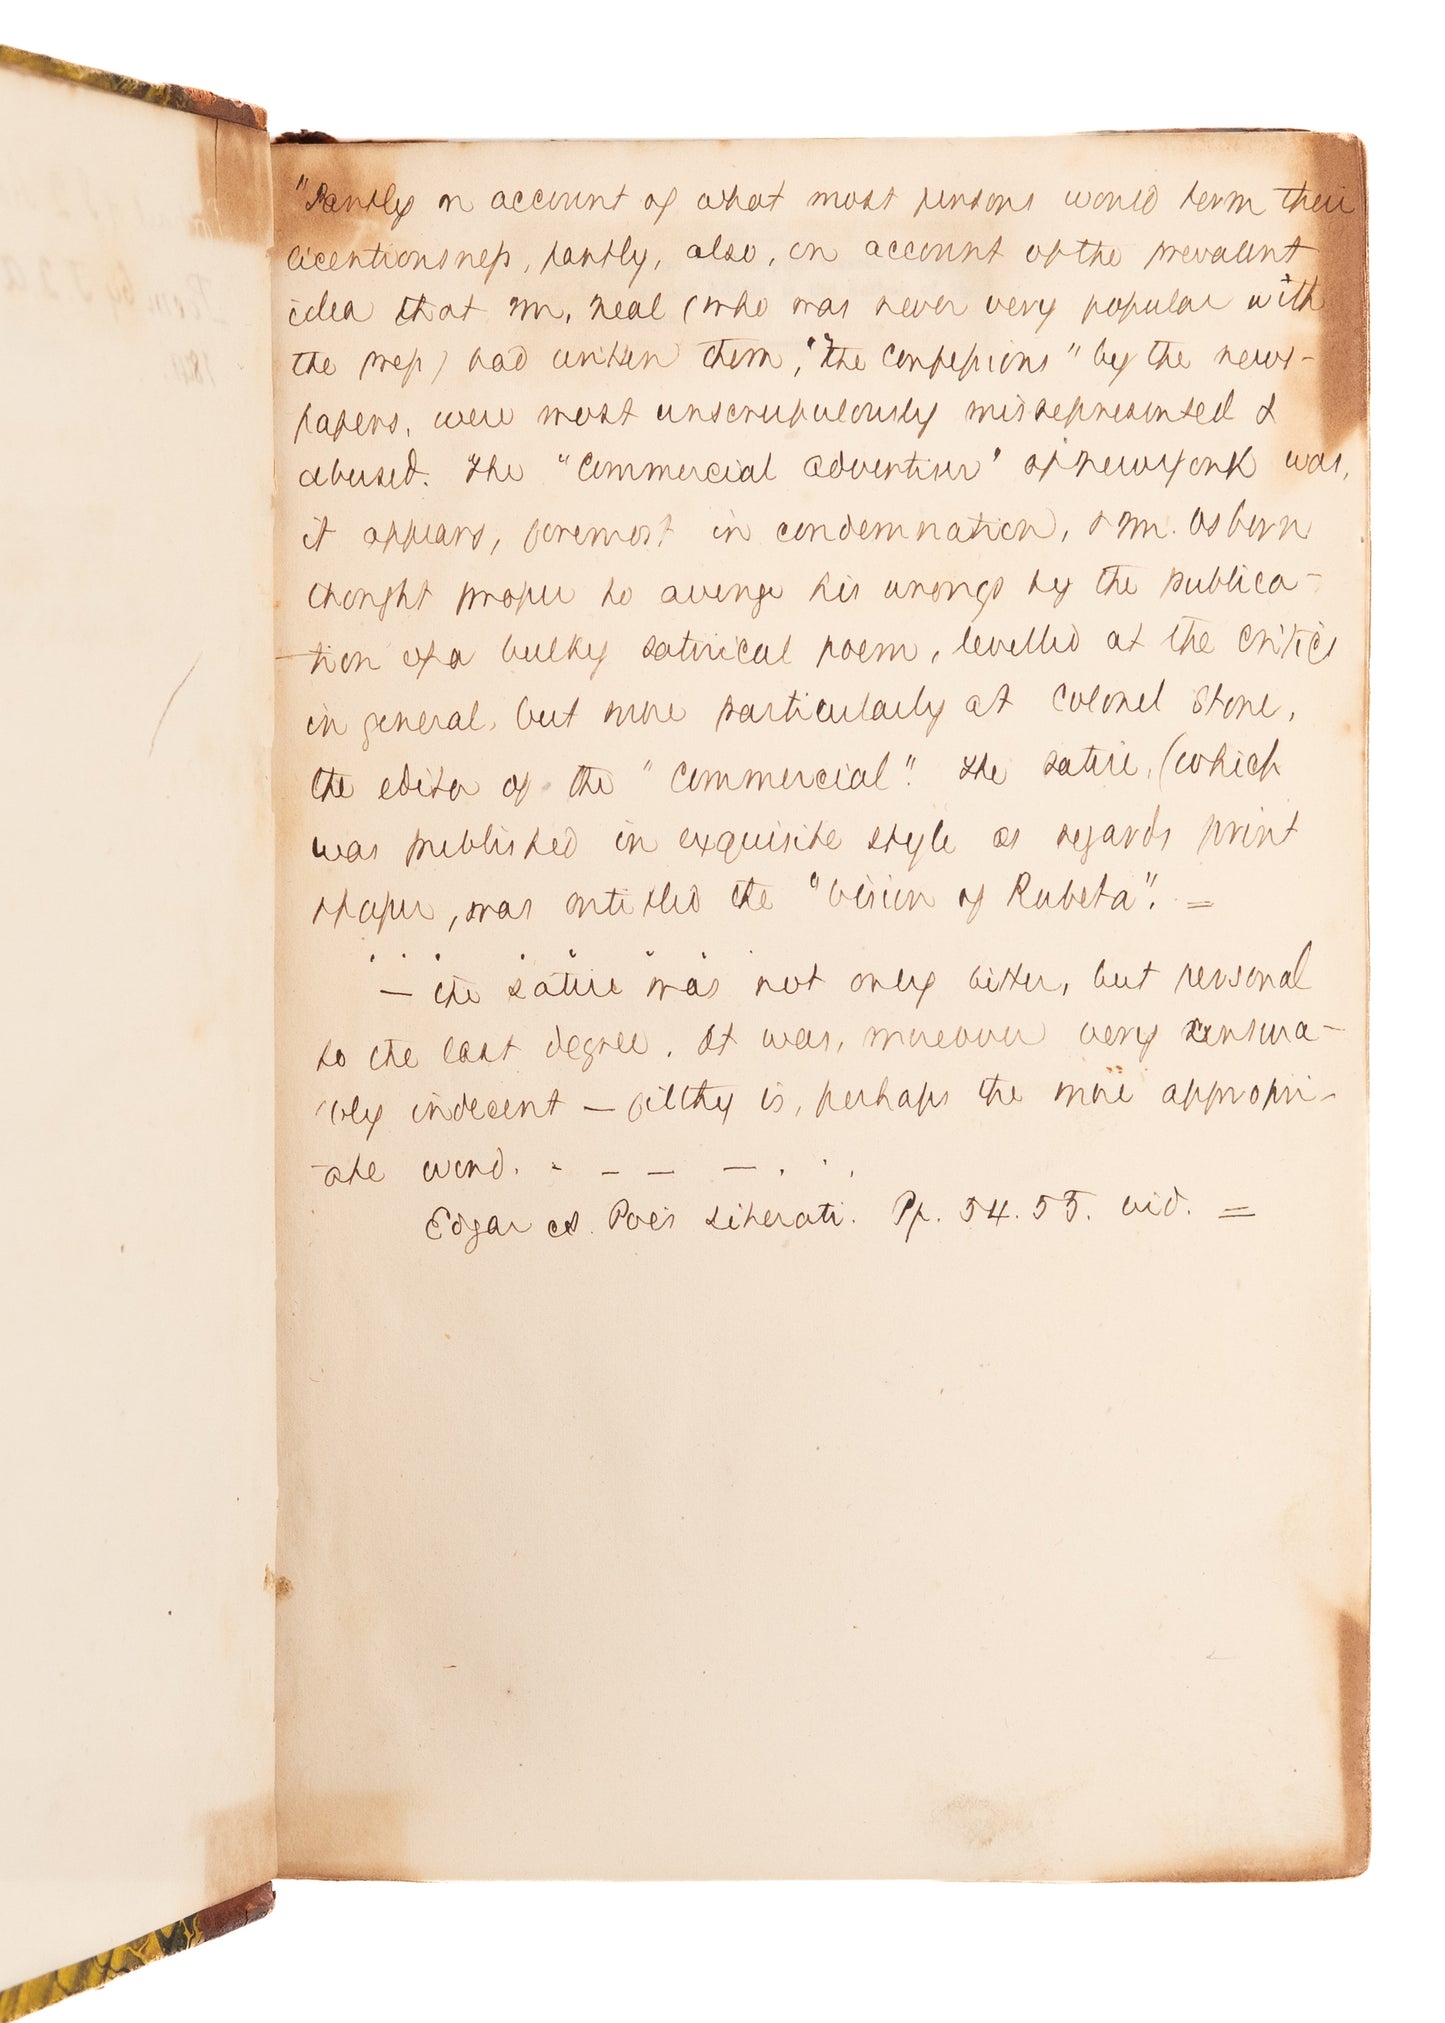 "Partly on account of what most persons would term their
licentiousness, partly, also, on account of the prevalent
idea that Mr. Neal (who was never very popular with
the press) had written them, "The Confessions" by the news-
papers, were most unscrupulously misrepresented &
abused. The "Commercial Advertiser" of New York was,
it appears, foremost in condemnation, & Mr. Osborn
thought proper to avenge his wrongs by the publica-
-tion of a bulky satirical poem, levelled at the critics
in general, but more particularly at Colonel Stone,
the editor of the "Commercial". The satire, (which
was published in exquisite style as regards print
& paper, was entitled the "Vision of Rubeta". =
— The satire was not only bitter, but personal
to the last degree. It was, moreover very censura-
-bly indecent — filthy is, perhaps the more appropri-
-ate word. - — — — . . .
Edgar A. Poe's Literati. Pp. 54. 55. vid. =
18